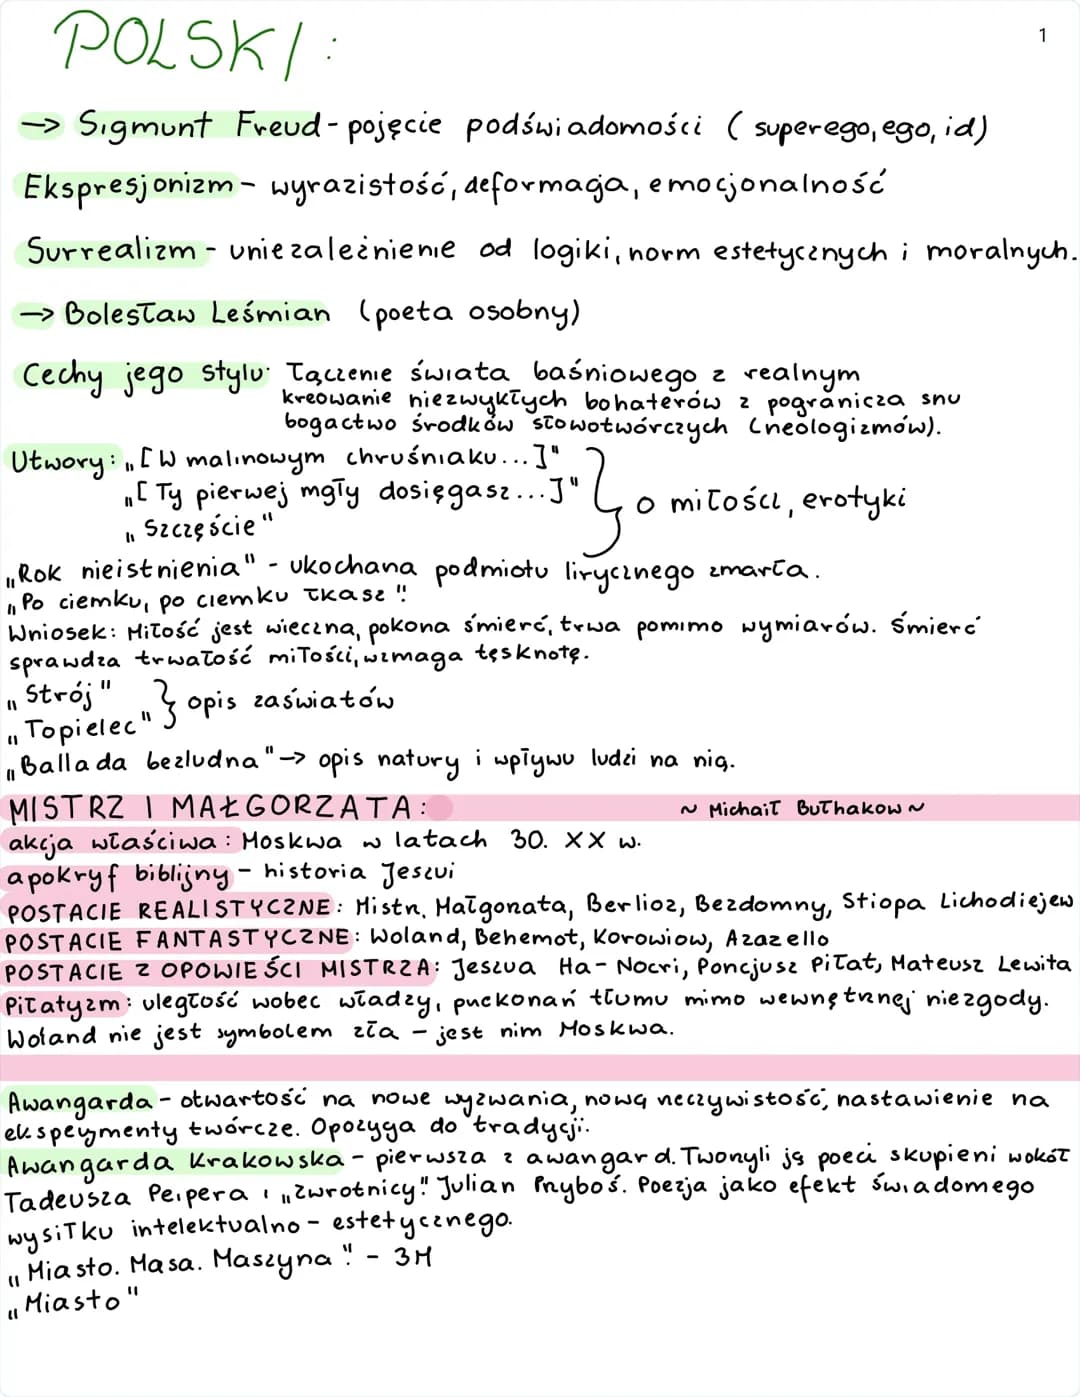 POLSKI:
1
→ Sigmunt Freud - pojęcie podświadomości (superego, ego, id)
Ekspresjonizm - wyrazistość, deformacja, emocjonalność
Surrealizm - uniezależnienie od logiki, norm estetycznych i moralnych.
→ Bolesław Leśmian (poeta osobny)
Cechy jego stylu: łączenie świata baśniowego z realnym
kreowanie niezwykłych bohaterów z pogranicza snu
bogactwo środków słowotwórczych (neologizmów).
Utwory: „[W malinowym chruśniaku...]"
„[Ty pierwej mgły dosięgasz...]" } o miłości, erotyki
„Szczęście"
„Rok nieistnienia" - ukochana podmiotu lirycznego zmarła.
„Po ciemku, po ciemku łkasz"!
Wniosek: Miłość jest wieczna, pokona śmierć, trwa pomimo wymiarów. Śmierć
sprawdza trwałość miłości, wzmaga tęsknotę.
„Strój" } opis zaświatów
„Topielec"
„Ballada bezludna" → opis natury i wpływu ludzi na nią.
MISTRZ I MAŁGORZATA: ~ Michaił Bułhakow ~
akcja właściwa: Moskwa w latach 30. XX w.
apokryf biblijny - historia Jeszui
POSTACIE REALISTYCZNE: Mistrz, Małgorzata, Berlioz, Bezdomny, Stiopa Lichodiejew
POSTACIE FANTASTYCZNE: Woland, Behemot, Korowiow, Azazello
POSTACIE Z OPOWIEŚCI MISTRZA: Jeszua Ha-Nocri, Poncjusz Piłat, Mateusz Lewita
Piłatyzm: uległość wobec władzy, przekonań tłumu mimo wewnętrznej niezgody.
Woland nie jest symbolem zła - jest nim Moskwa.
Awangarda - otwartość na nowe wyzwania, nową rzeczywistość, nastawienie na
eksperymenty twórcze. Opozycja do tradycji.
Awangarda Krakowska - pierwsza z awangard. Tworzyli ją poeci skupieni wokół
Tadeusza Peipera i „Zwrotnicy". Julian Przyboś. Poezja jako efekt świadomego
wysiłku intelektualno-estetycznego.
„Miasto. Masa. Maszyna". - 3M
„Miasto"